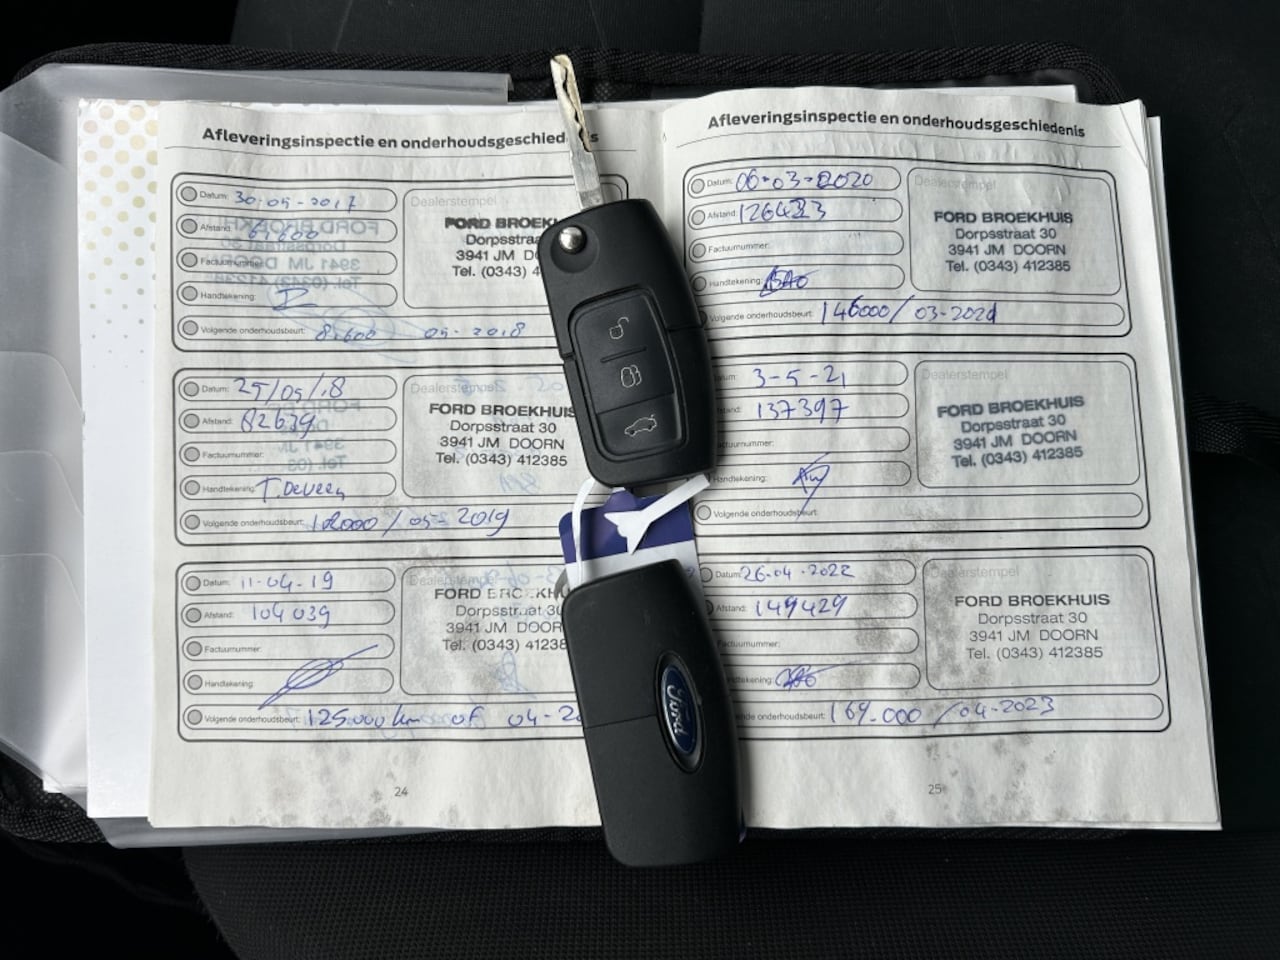 Afleveringsinspectie en onderhoudsgeschied s
Datum: 30-05-2017
Dealerstempel
Afstand: 61,600
FORD BROEKHUIS
Dorpsstraa
3941 JM DO
Tel. (0343) 4
Factuurnummer:
Handtekening:
Volgende onderhoudsbeurt: 05-2018
Datum: 25/05/18
Dealerstempel
Afstand: 82639
FORD BROEKHUIS
Dorpsstraat 30
3941 JM DOORN
Tel. (0343) 412385
Factuurnummer:
Handtekening: T. Deveen
Volgende onderhoudsbeurt: /05-2019
Datum: 11-04-19
Dealerstempel
Afstand: 104039
FORD BROEKHU
Dorpsstraat 30
3941 JM DOOR
Tel. (0343) 4123
Factuurnummer:
Handtekening:
Volgende onderhoudsbeurt: 125.000 km of 04-20
24
Afleveringsinspectie en onderhoudsgeschiedenis
Datum: 06-03-2020
Dealerstempel
Afstand: 126433
FORD BROEKHUIS
Dorpsstraat 30
3941 JM DOORN
Tel. (0343) 412385
Factuurnummer:
Handtekening:
Volgende onderhoudsbeurt: 146000/03-2021
atum: 3-5-21
Dealerstempel
stand: 137397
FORD BROEKHUIS
Dorpsstraat 30
3941 JM DOORN
Tel. (0343) 412385
actuurnummer:
Handtekening:
Volgende onderhoudsbeurt:
Datum: 26-04-2022
Dealerstempel
Afstand: 149429
FORD BROEKHUIS
Dorpsstraat 30
3941 JM DOORN
Tel. (0343) 412385
Factuurnummer:
dtekening:
nde onderhoudsbeurt: 169.000 /04-2023
25
Ford